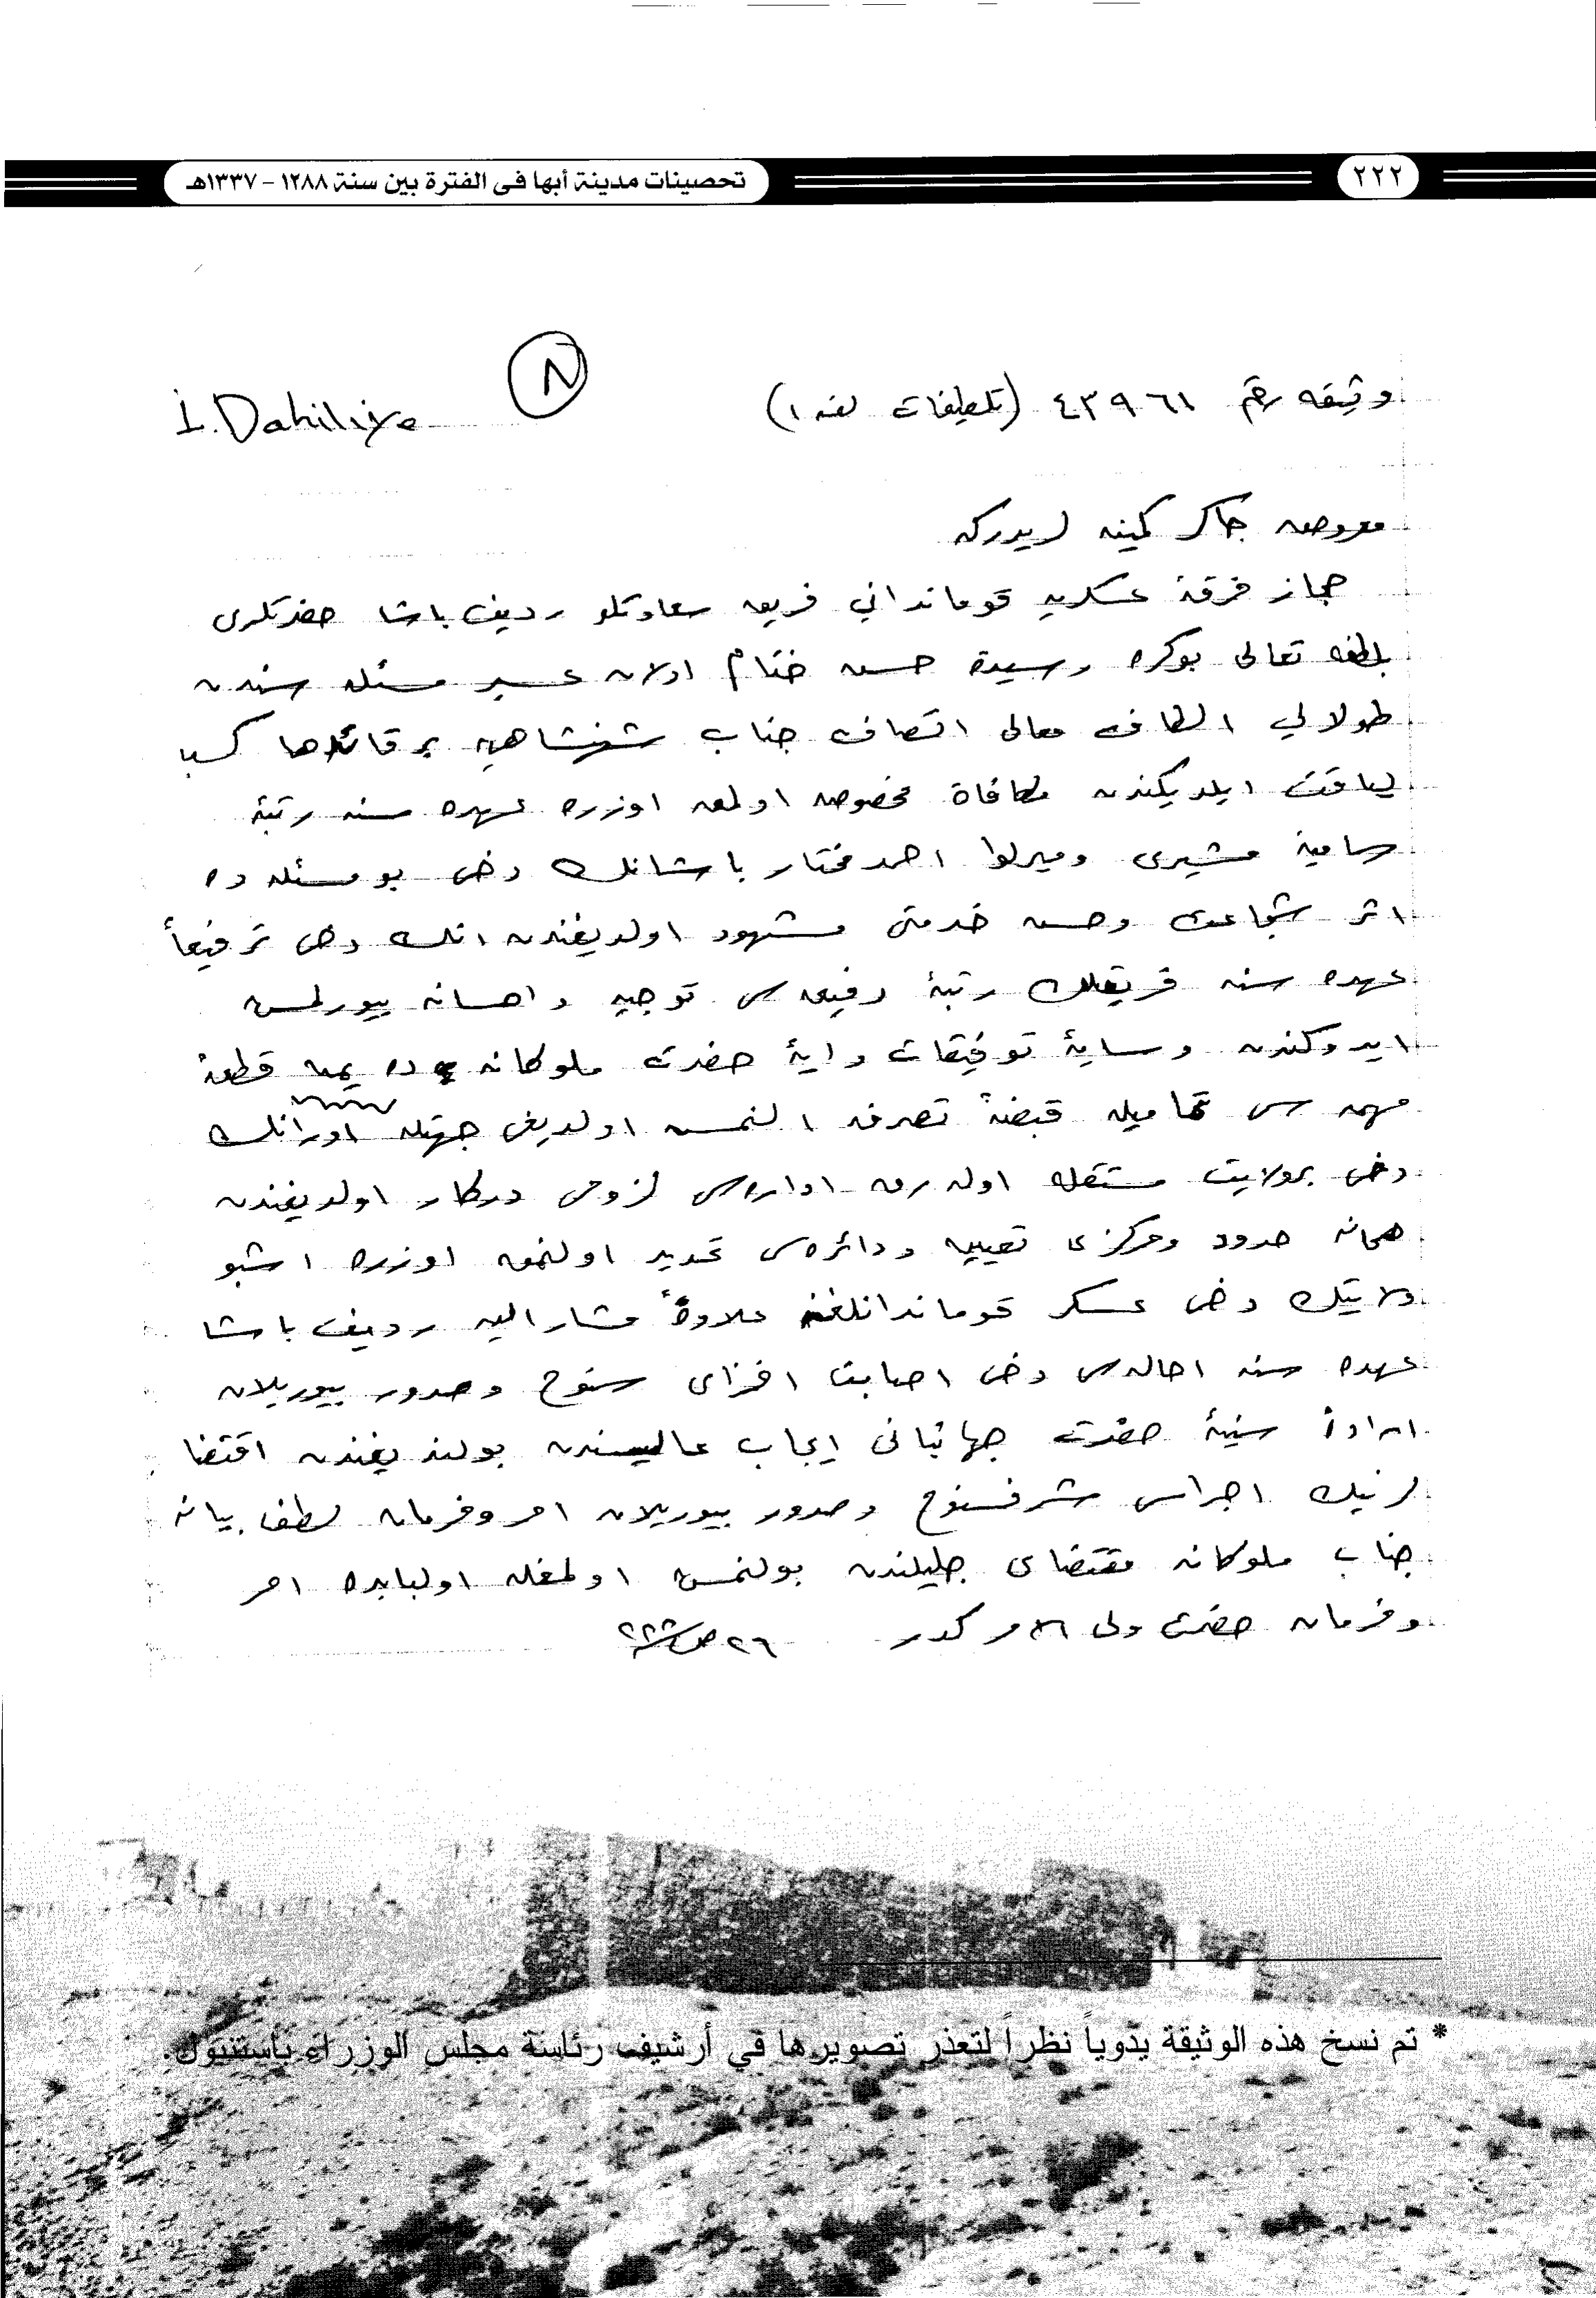 ٢٢٢
تحصينات مدينة أبها في الفترة بين سنة ١٢٨٨ - ١٣٣٧هـ
وثيقه رقم ٤٣٩٦١ (تلطيفات لفه ١)
٨
İ.Dahiliye
معروض چاكر كمينه لريدركه
حجاز فرقهٔ عسكريه قومانداني فريق سعادتلو رديف باشا حضرتلرى
بلطفه تعالى بوكره رسيدهٔ حسن ختام اولان عسير مسئله سندن
طولايي الطاف معالى اتصاف جناب شهنشاهى به قات دها كسب
لياقت ايلديكندن مكافاة مخصوصه اولمق اوزره عهده سنه رتبهٔ
ساميهٔ مشيرى وميرلوا احمد مختار باشانك دخى بو مسئله ده
اثر شجاعت وحسن خدمتى مشهود اولديغندن انك دخى ترفيعاً
عهده سنه فريقلك رتبهٔ رفيعه سى توجيه واحسان بيورلمسى
ايدوكندن وسايهٔ توفيقات وايهٔ حضرت ملوكانه ده يمن قطعهٔ
مهمه سى تماميله قبضهٔ تصرفه النمش اولديغى جهتله اورانك
دخى بر ولايت مستقله اوله رق اداره سى لزومى دركار اولديغندن
همان حدود ومركزى تعيين ودائره سى تحديد اولنمق اوزره اشبو
ولايتك دخى عسكر قوماندانلغنه علاوةً مشار اليه رديف باشا
عهده سنه احاله سى دخى اصابت افزاى سنوح وصدور بيوريلان
ارادهٔ سنيهٔ حضرت جهانبانى ايجاب عاليسندن بولنديغندن اقتضا
لرينك اجراسى شرفسنوح وصدور بيوريلان امر وفرمان لطف بيان
جناب ملوكانه مقتضاى جليلندن بولنمش اولمغله اولبابده امر
وفرمان حضرت ولى الامر كدر ٢٦ ص ٢٨٨
* تم نسخ هذه الوثيقة يدوياً نظراً لتعذر تصويرها في أرشيف رئاسة مجلس الوزراء بأستنبول.